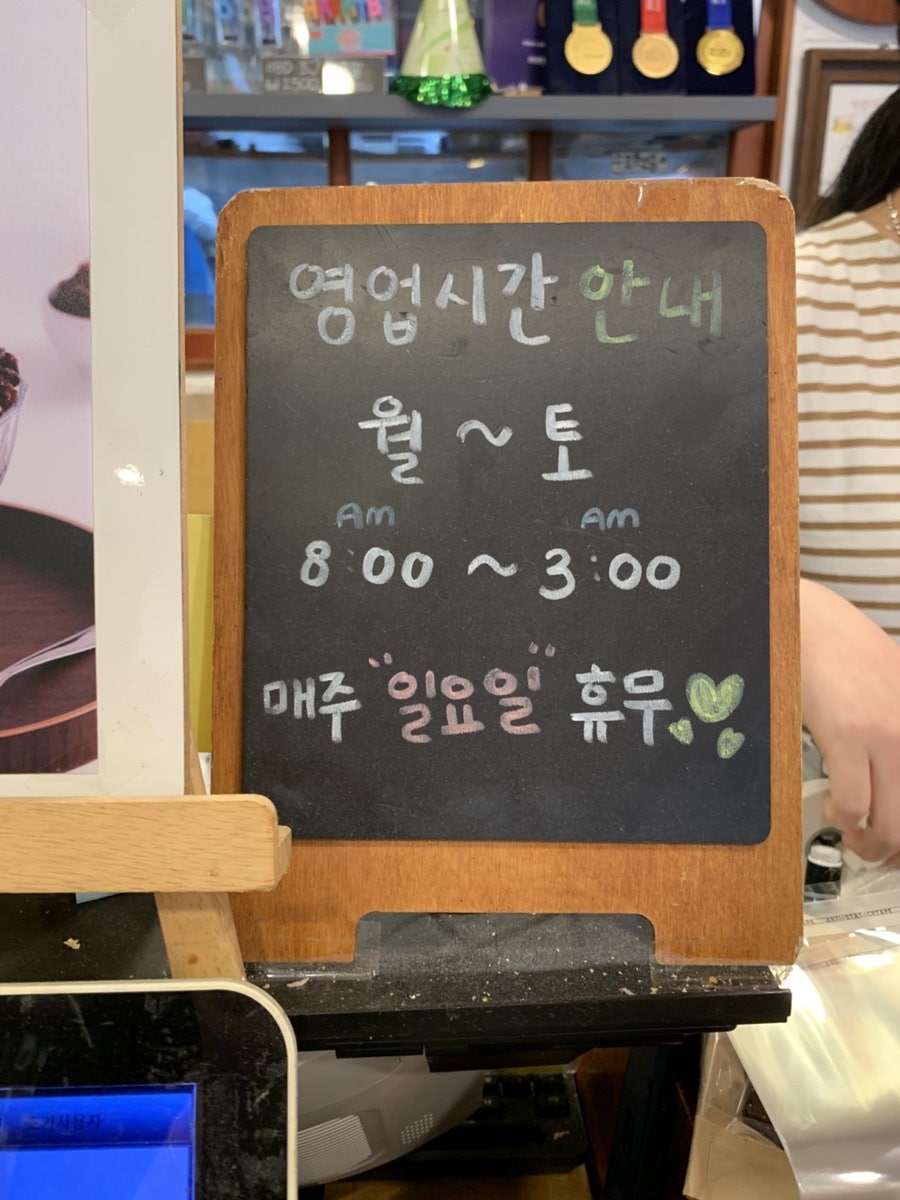 영업시간 안내
월 ~ 토
AM AM
8:00 ~ 3:00
매주 "일요일" 휴무
초기사용자